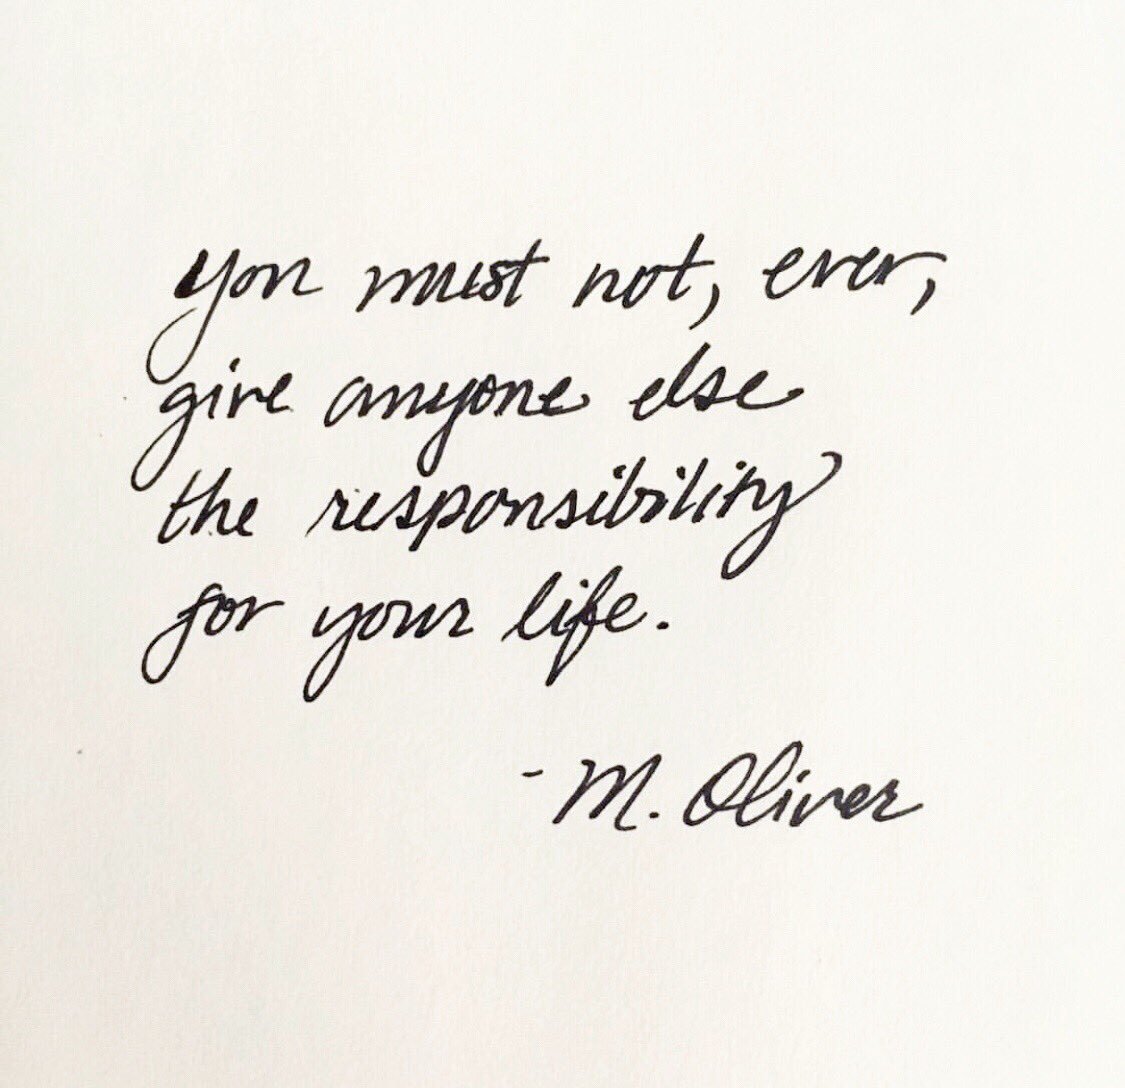 you must not, ever,
give anyone else
the responsibility
for your life.
- M. Oliver